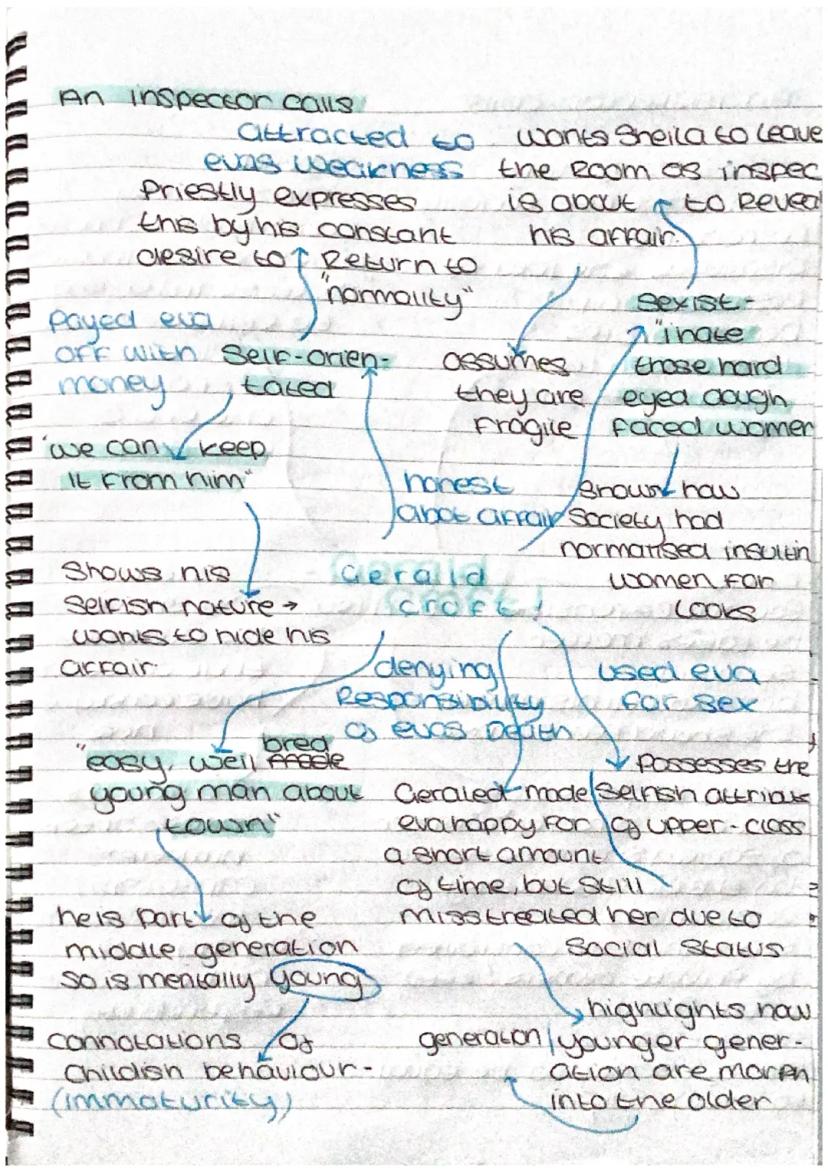 An inspector calls
attracted to
evas weakness
Priestly expresses
this by his constant
desire to Return to
"normality"
wants Sheila to leave
the Room as inspec
is about to Reveal
his affair.
Payed eva
off with
money
Self-orien-
tated
assumes
they are
fragile
Sexist-
"i hate
those hard
eyed dough
faced women
"we can keep
it from him"
honest
abot affair
Shows how
Society had
normalised insultin
women for
looks
Shows his
Selfish nature →
wants to hide his
affair.
Gerald
Croft!
denying
Responsibility
of evas Death
used eva
for sex
"easy, well bred
young man about
town"
Geraled made
eva happy for
a short amount
of time, but still
misstreated her due to
Social Status
Possesses the
Selfish attriate
of upper-class
he is part of the
middle generation
so is mentally young
connotations of
childish behaviour-
(immaturity)
highlights how
younger gener-
ation are morph
into the older
generation